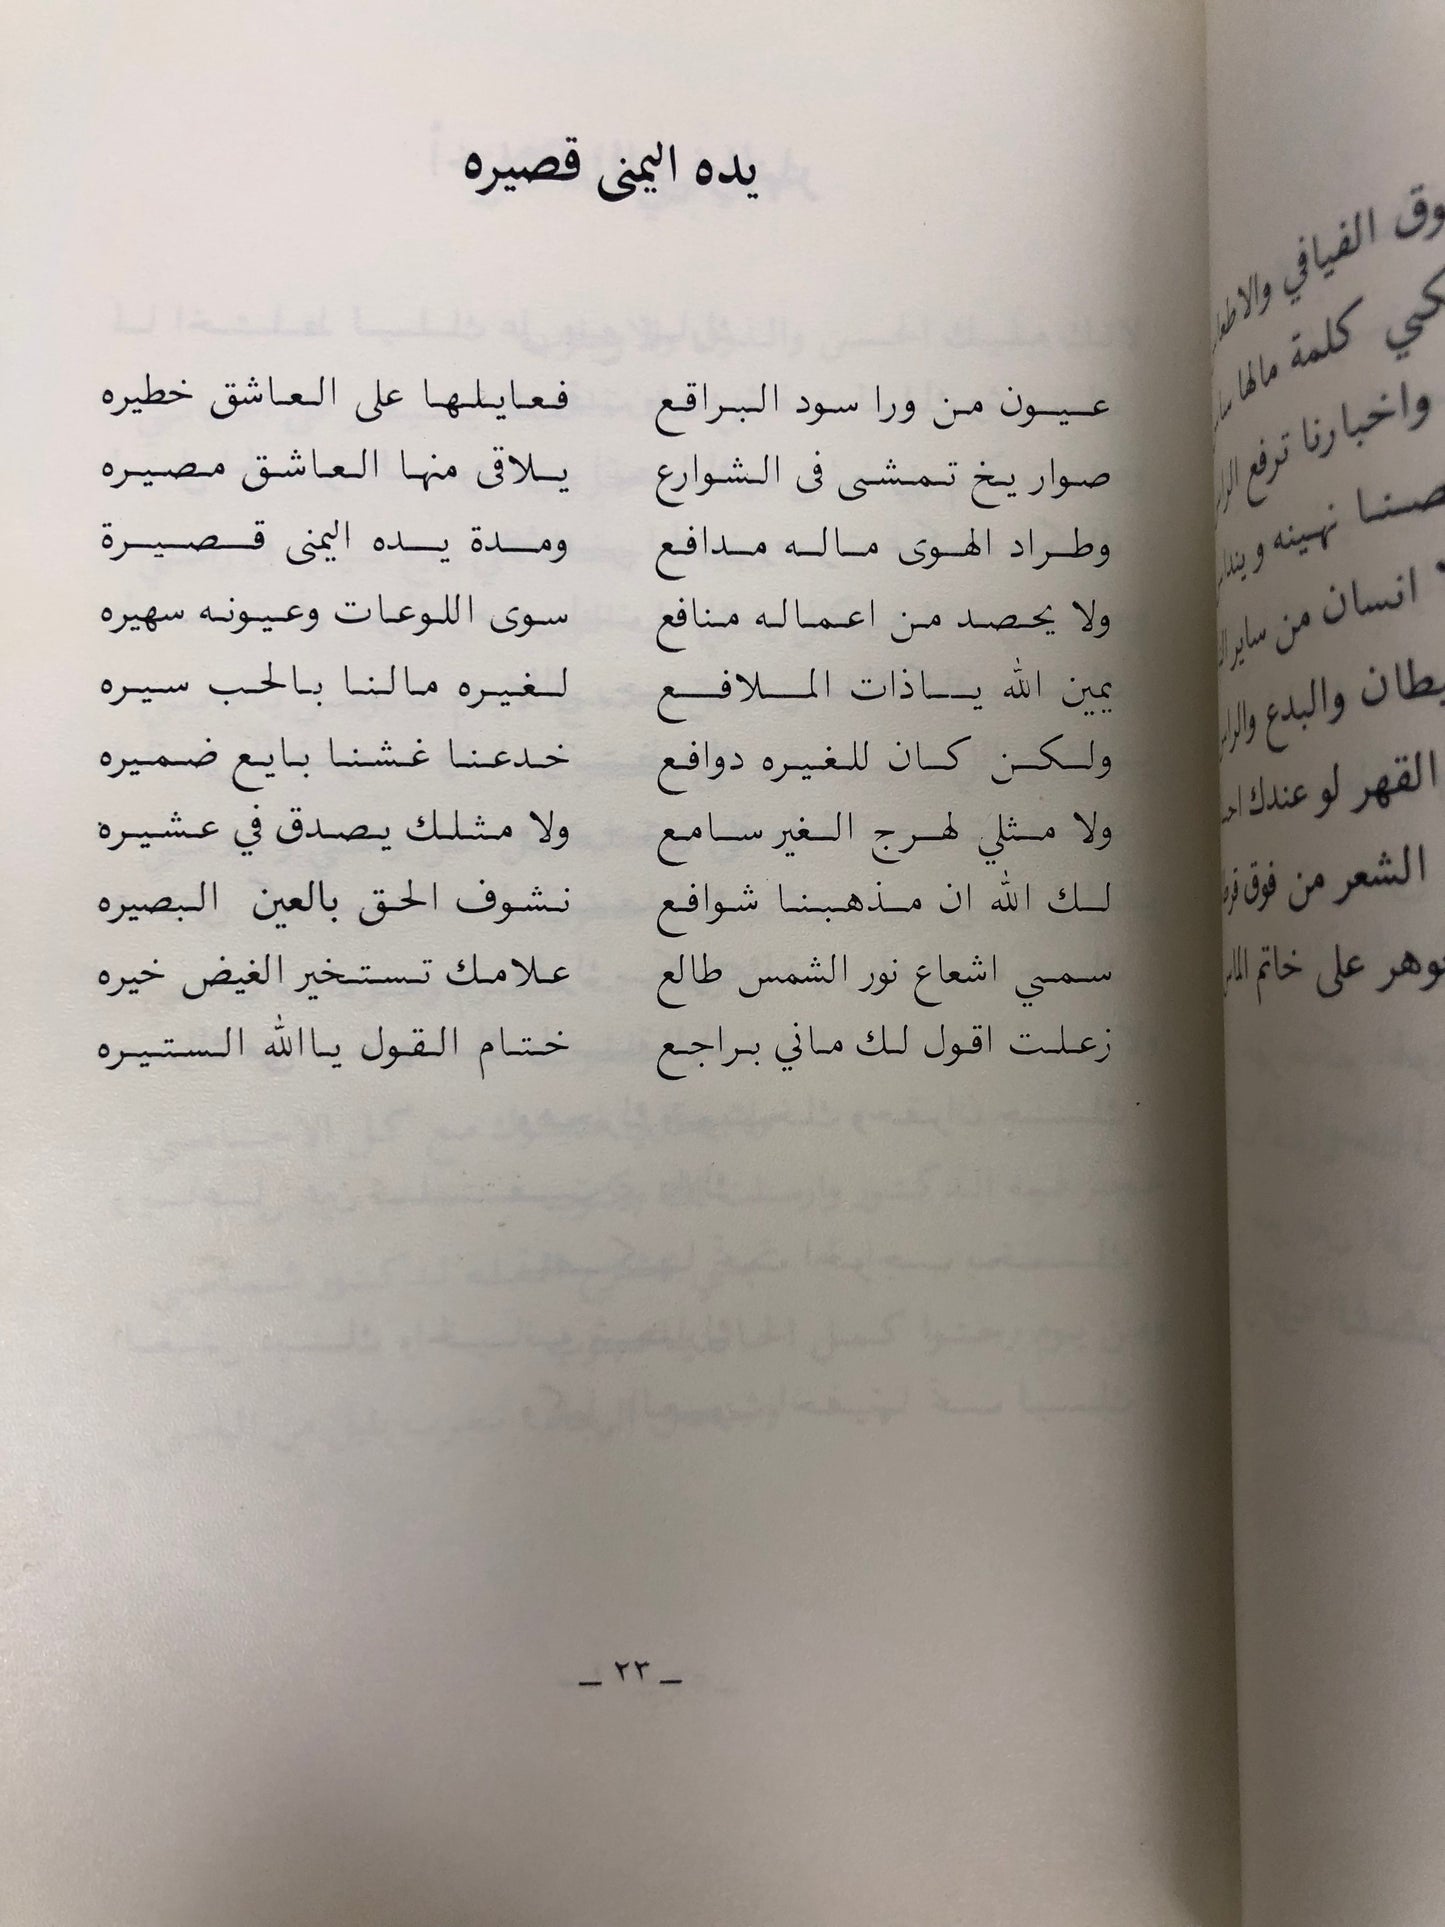 يده اليمنى قصيره
عيون من ورا سود البراقع فعايلها على العاشق خطيره
صوار يخ تمشى فى الشوارع يلاقى منها العاشق مصيره
وطراد الهوى ماله مدافع ومدة يده اليمنى قصيرة
ولا يحصد من اعماله منافع سوى اللوعات وعيونه سهيره
يمين الله ياذات الملافع لغيره مالنا بالحب سيره
ولكن كان للغيره دوافع خدعنا غشنا بايع ضميره
ولا مثلي لهرج الغير سامع ولا مثلك يصدق في عشيره
لك الله ان مذهبنا شوافع نشوف الحق بالعين البصيره
سمي اشعاع نور الشمس طالع علامك تستخير الغيض خيره
زعلت اقول لك ماني براجع ختام القول ياالله الستيره
_ ٢٣ _
وق الفيافي
كلمة مالها
واخبارنا ترفع
نهينه
انسان من ساير
والبدع
القهر لو عندك
الشعر من فوق
على خاتم